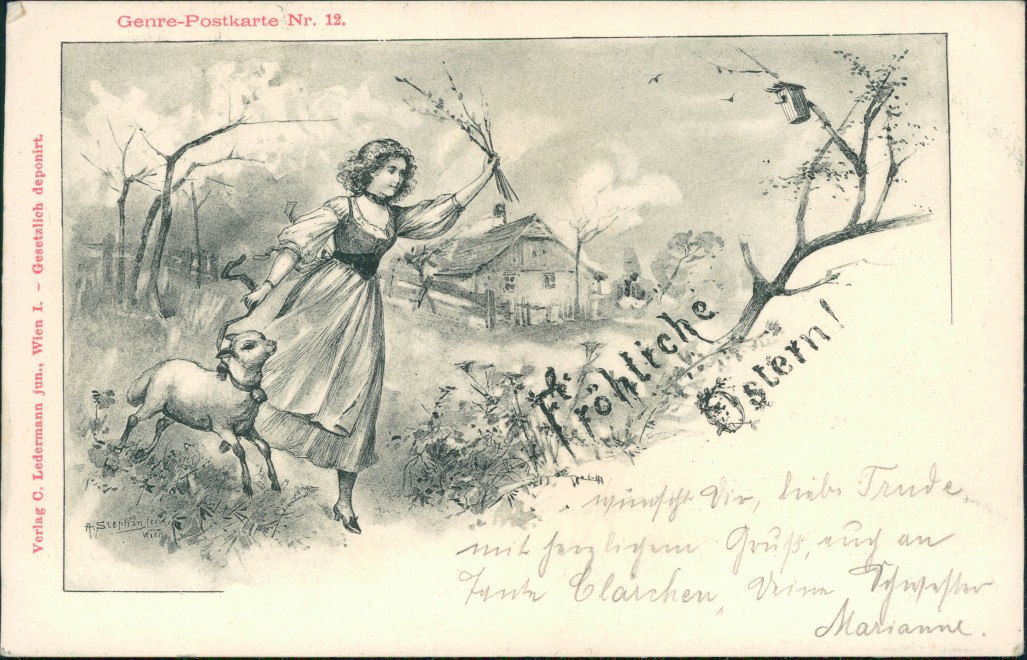 Genre-Postkarte Nr. 12.
Verlag C. Ledermann jun., Wien I. – Gesetzlich deponirt.
Fröhliche
Ostern!
wünscht Dir, liebe Trude,
mit herzlichem Gruß, auch an
Tante Clärchen, Deine Schwester
Marianne.
A. Stephan fec.
Wien